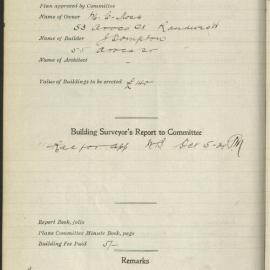 Plan approved by Committee
Name of Owner
53 Avoca St Randwick
Name of Builder J Compton
55 Avoca
Name of Architect –
Value of Buildings to be erected £140
Building Surveyor's Report to Committee
Rec for app Oct 5
Report Book, folio
Plans Committee Minute Book, page
Building Fee Paid 5/-
Remarks